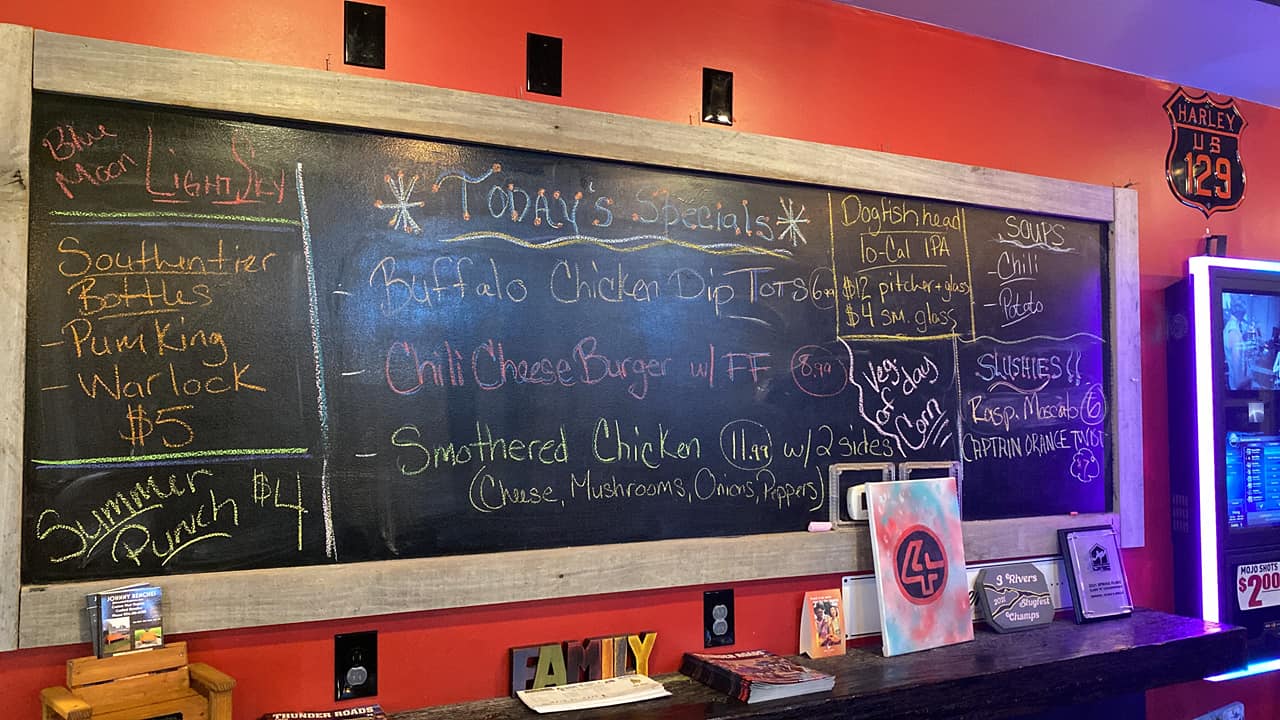 Blue
Moon
LIGHT SKY
Southern tier
Bottles
- PUMKING
- WARLOCK
$5
SUMMER
Punch $4
TODAY'S SPECIALS
- Buffalo Chicken Dip TOTS 6.99
- Chili Cheese Burger w/ FF 8.99
- Smothered Chicken 11.99 w/ 2 sides
(Cheese, Mushrooms, Onions, Peppers)
Dogfish head
lo-Cal IPA
$12 pitcher + glass
$4 sm. glass
Veg
of day
Corn
SOUPS
- Chili
- Potato
SLUSHIES!!
Rasp. Moscato 6
CAPTAIN ORANGE TWIST
HARLEY
US
129
MOJO SHOTS
$2.00
JOHNNY BENCHES
FAMILY
THUNDER ROADS
THUNDER ROADS
4
3 Rivers
2021 Slugfest
Champs